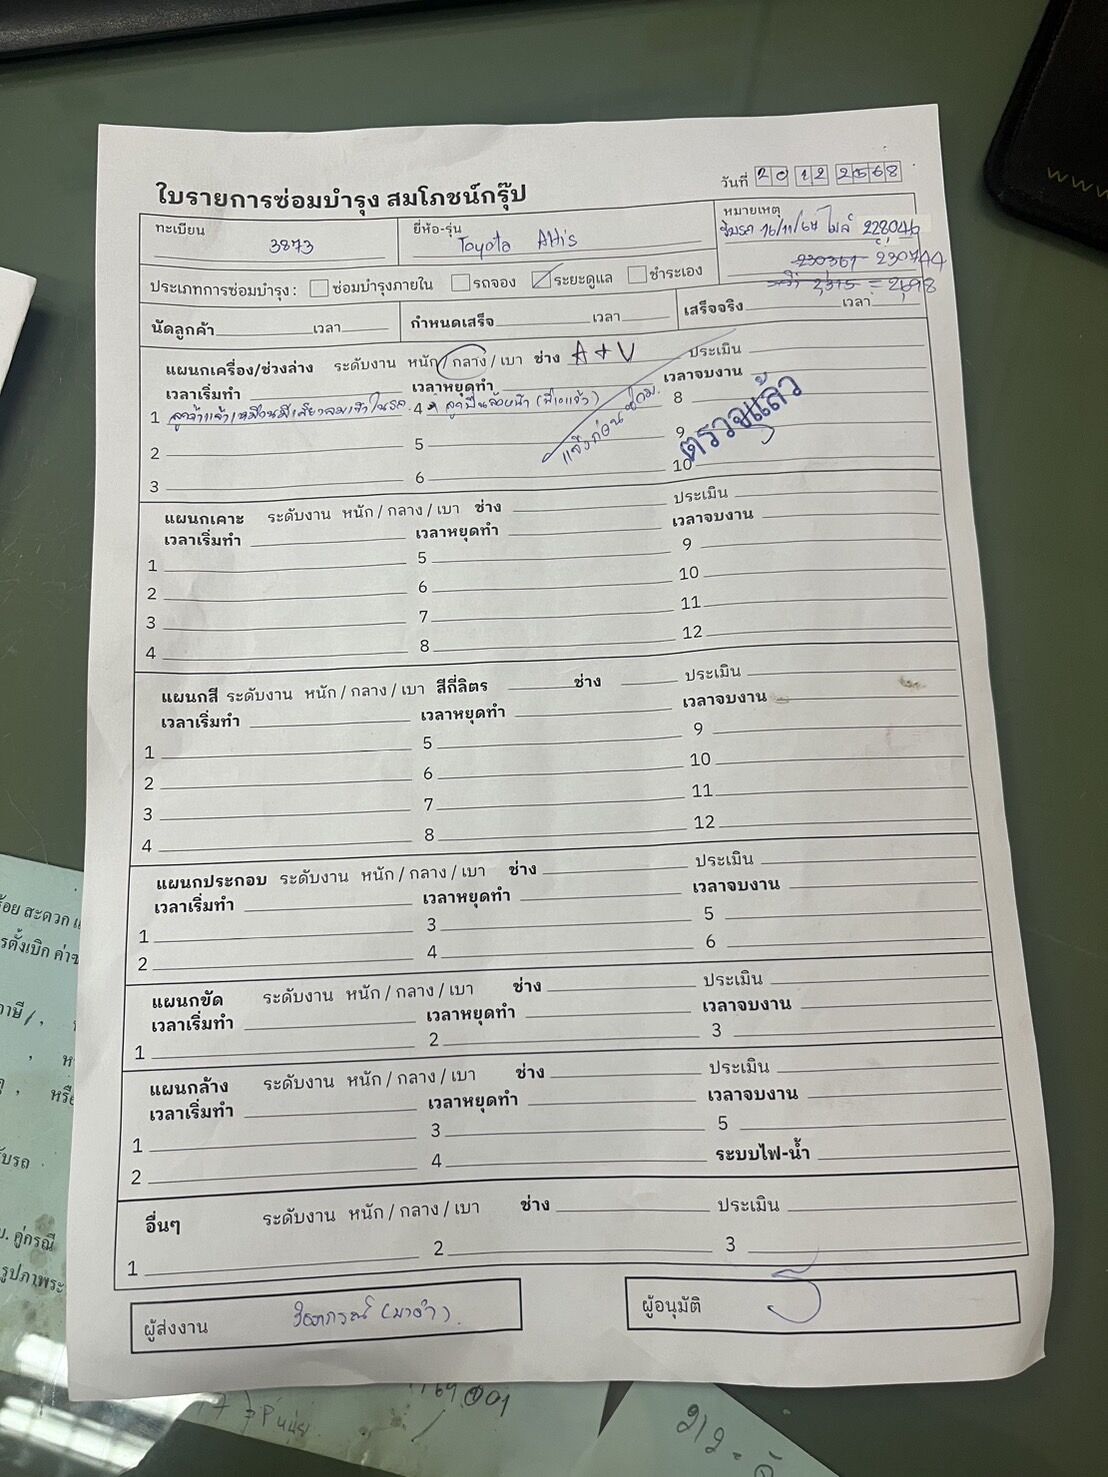 ใบรายการซ่อมบำรุง สมโภชน์กรุ๊ป
วันที่ 20 12 2568
ทะเบียน 3873
ยี่ห้อ-รุ่น Toyota Altis
หมายเหตุ
16/11/68 ไมล์ 228046
230361 - 230744
2,315 = 2698
ประเภทการซ่อมบำรุง : ซ่อมบำรุงภายใน รถจอง ระยะดูแล ชำระเอง
นัดลูกค้า เวลา กำหนดเสร็จ เวลา เสร็จจริง เวลา
แผนกเครื่อง/ช่วงล่าง ระดับงาน หนัก / กลาง / เบา ช่าง A + V ประเมิน
เวลาเริ่มทำ เวลาหยุดทำ เวลาจบงาน
1 ลูกค้าแจ้งเหมือนมีเสียงลมเข้าในรถ 4 ลูกปืนล้อหน้า 8
2 5 9
3 6 10
แจ้งก่อนซ่อม
ตรวจแล้ว
แผนกเคาะ ระดับงาน หนัก / กลาง / เบา ช่าง ประเมิน
เวลาเริ่มทำ เวลาหยุดทำ เวลาจบงาน
1 5 9
2 6 10
3 7 11
4 8 12
แผนกสี ระดับงาน หนัก / กลาง / เบา สีกี่ลิตร ช่าง ประเมิน
เวลาเริ่มทำ เวลาหยุดทำ เวลาจบงาน
1 5 9
2 6 10
3 7 11
4 8 12
แผนกประกอบ ระดับงาน หนัก / กลาง / เบา ช่าง ประเมิน
เวลาเริ่มทำ เวลาหยุดทำ เวลาจบงาน
1 3 5
2 4 6
แผนกขัด ระดับงาน หนัก / กลาง / เบา ช่าง ประเมิน
เวลาเริ่มทำ เวลาหยุดทำ เวลาจบงาน
1 2 3
แผนกล้าง ระดับงาน หนัก / กลาง / เบา ช่าง ประเมิน
เวลาเริ่มทำ เวลาหยุดทำ เวลาจบงาน
1 3 5
2 4 ระบบไฟ-น้ำ
อื่นๆ ระดับงาน หนัก / กลาง / เบา ช่าง ประเมิน
1 2 3
ผู้ส่งงาน
ผู้อนุมัติ